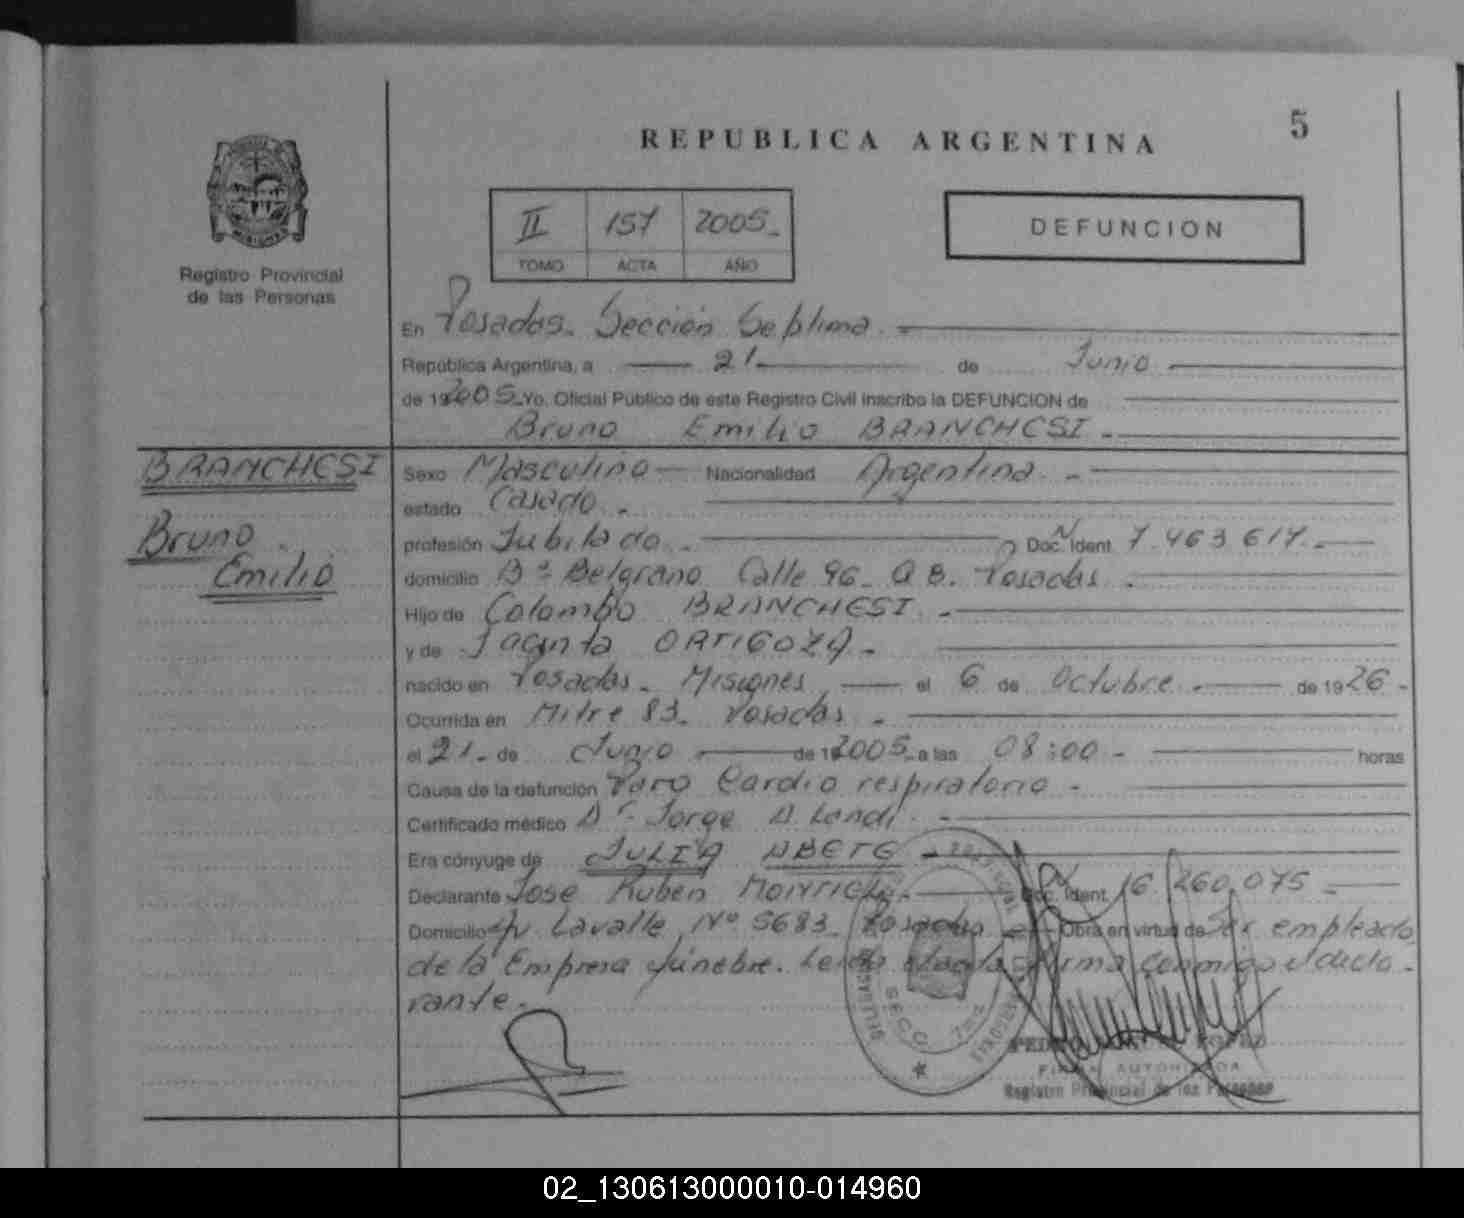 5
REPUBLICA ARGENTINA
II 157 2005
TOMO ACTA AÑO
DEFUNCION
MISIONES
Registro Provincial
de las Personas
En Posadas. Sección Septima.
República Argentina, a 21 de Junio
de 192005 Yo, Oficial Público de este Registro Civil inscribo la DEFUNCION de
Bruno Emilio BRANCHESI
BRANCHESI
Bruno
Emilio
Sexo Masculino Nacionalidad Argentina
estado Casado
profesión Jubilado Doc. Ident. N 7.463.617
domicilio Bº Belgrano Calle 96 Posadas
Hijo de Colombo BRANCHESI
y de Jacinta ORTIGOZA
nacido en Posadas. Misiones el 6 de Octubre de 1926
Ocurrida en Mitre 83. Posadas
el 21 de Junio de 192005 a las 08:00 horas
Causa de la defunción Paro Cardio respiratorio
Certificado médico Dr. Jorge Landi
Era cónyuge de JULIA
Declarante José Ruben Doc. Ident. N 16.260.075
Domicilio Av Lavalle Nº 5683. Posadas Obra en virtud de Ser empleado
de la Empresa fúnebre. Leida el acta firma conmigo el decla-
rante.
FIRMA AUTORIZADA
Registro Provincial de las Personas
02_130613000010-014960